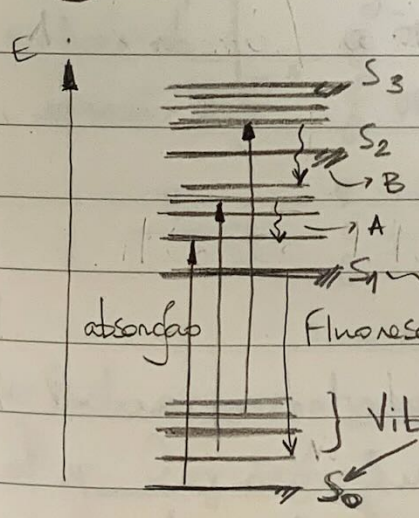 E
S3
S2
B
A
S1
absorção
Fluores
Vib
S0